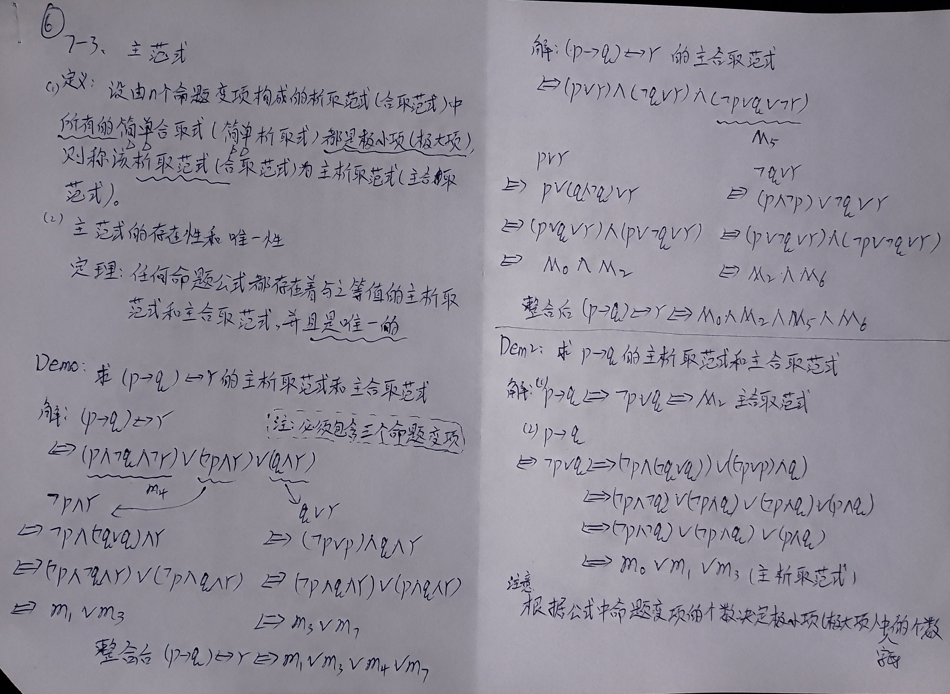 ⑥
7-3、主范式
(1) 定义：设由n个命题变项构成的析取范式(合取范式)中
所有的简单合取式(简单析取式)都是极小项(极大项),
则称该析取范式(合取范式)为主析取范式(主合取
范式)。
(2) 主范式的存在性和唯一性
定理：任何命题公式都存在着与之等值的主析取
范式和主合取范式,并且是唯一的
Demo: 求(p→q)↔r的主析取范式和主合取范式
解：(p→q)↔r
注：必须包含三个命题变项
⇔(p∧¬q∧¬r)∨(¬p∧r)∨(q∧r)
m₄
¬p∧r
⇔¬p∧(¬q∨q)∧r
⇔(¬p∧¬q∧r)∨(¬p∧q∧r)
⇔ m₁∨m₃
q∨r
⇔(¬p∨p)∧q∧r
⇔(¬p∧q∧r)∨(p∧q∧r)
⇔m₃∨m₇
整合后(p→q)↔r⇔m₁∨m₃∨m₄∨m₇
解：(p→q)↔r的主合取范式
⇔(p∨r)∧(¬q∨r)∧(¬p∨q∨¬r)
M₅
p∨r
⇔ p∨(q∧¬q)∨r
⇔(p∨q∨r)∧(p∨¬q∨r)
⇔ M₀∧M₂
¬q∨r
⇔(p∧¬p)∨¬q∨r
⇔(p∨¬q∨r)∧(¬p∨¬q∨r)
⇔ M₂∧M₆
整合后(p→q)↔r⇔M₀∧M₂∧M₅∧M₆
Dem2: 求p→q的主析取范式和主合取范式
解：(1)p→q⇔¬p∨q⇔M₂ 主合取范式
(2)p→q
⇔¬p∨q⇔(¬p∧(¬q∨q))∨((¬p∨p)∧q)
⇔(¬p∧¬q)∨(¬p∧q)∨(¬p∧q)∨(p∧q)
⇔(¬p∧¬q)∨(¬p∧q)∨(p∧q)
⇔m₀∨m₁∨m₃(主析取范式)
注意
根据公式中命题变项的个数决定极小项(极大项)中的个数